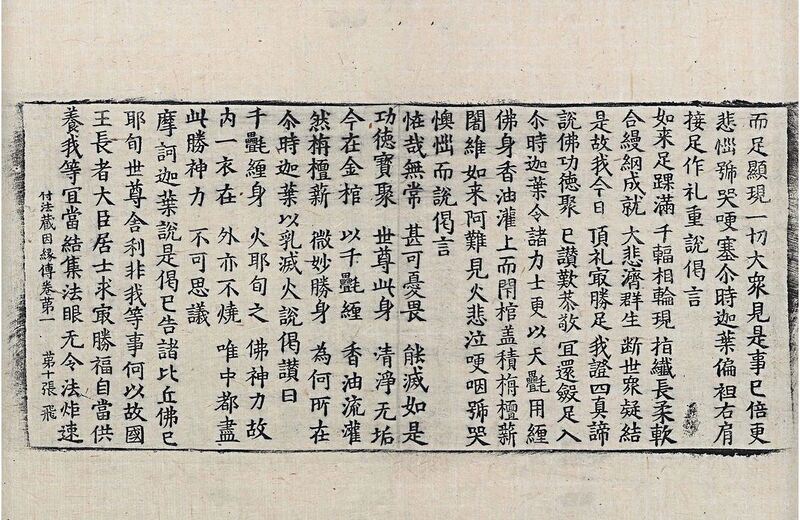 而足顯現一切大衆見是事已倍更
悲惱號哭哽塞尒時迦葉偏袒右肩
接足作礼重說偈言
如來足踝滿　千輻相輪現　指纖長柔軟
合縵網成就　大悲濟群生　斷世衆疑結
是故我今日　頂礼㝡勝足　我證四真諦
說佛功德聚　已讚歎恭敬　冥還斂足入
尒時迦葉令諸力士更以天㲲用纏
佛身香油灌上而閇棺盖積栴檀薪
闍維如來阿難見火悲泣哽咽號哭
懊惱而說偈言
恠哉無常　甚可憂畏　能滅如是
功德寶聚　世尊此身　清淨无垢
今在金棺　以千㲲纏　香油流灌
然栴檀薪　微妙勝身　為何所在
尒時迦葉以乳滅火說偈讚曰
千㲲纏身　火耶旬之　佛神力故
内一衣在　外亦不燒　唯中都盡
此勝神力　不可思議
摩訶迦葉說是偈已告諸比丘佛已
耶旬世尊舍利非我等事何以故國
王長者大臣居士求㝡勝福自當供
養我等宜當結集法眼无令法炸速
付法蔵因緣傳卷第一　第十張　飛